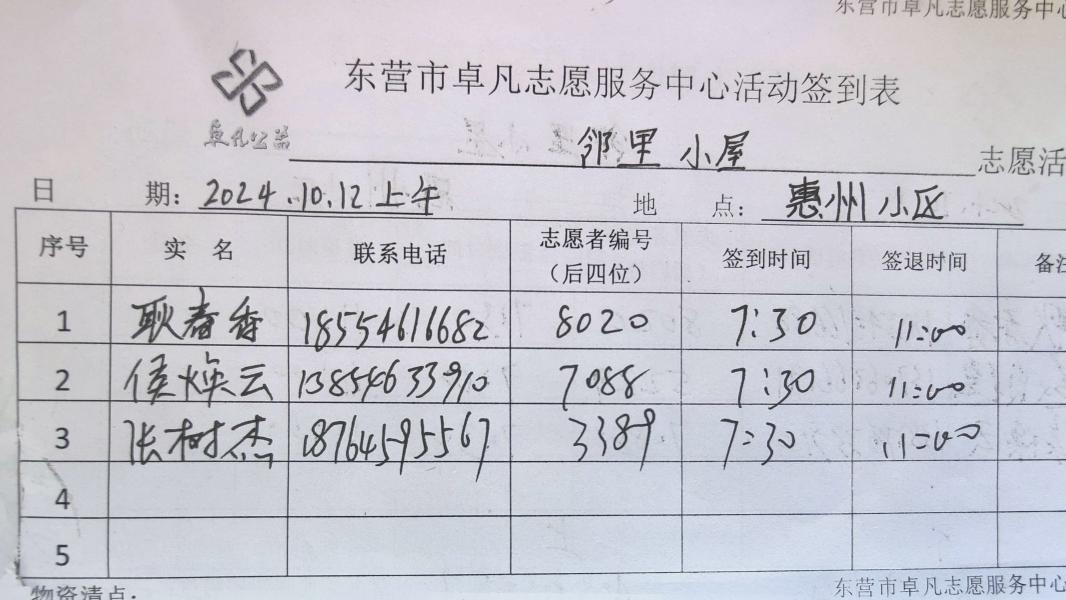 东营市卓凡志愿服务中心
东营市卓凡志愿服务中心活动签到表
卓凡公益
邻里小屋 志愿活
日 期：2024.10.12上午 地 点：惠州小区
序号 实 名 联系电话 志愿者编号（后四位） 签到时间 签退时间 备注
1 耿春香 18554616682 8020 7:30 11:00
2 侯焕云 13854633910 7088 7:30 11:00
3 张树杰 18764595567 3389 7:30 11:00
4
5
物资清点：
东营市卓凡志愿服务中心